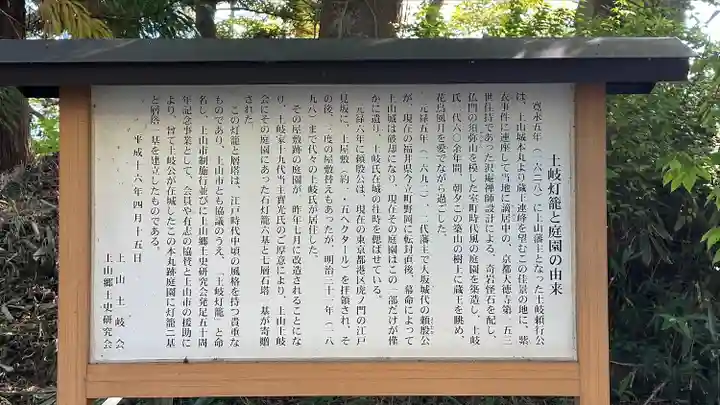 土岐灯篭と庭園の由来
寛永五年(一六二八)に上山藩主となった土岐頼行公
は、上山城本丸より蔵王連峰を望むこの佳景の地に、紫
衣事件に連座して当地に謫居中の、京都大徳寺第一五三
世住持であった沢庵禅師設計による、奇岩怪石を配し、
仏門の須弥山を模した室町時代風の庭園を築造し、土岐
氏二代六〇余年間、朝夕この築山の樹上に蔵王を眺め、
花鳥風月を愛でながら過ごした。
元禄五年(一六九二)、二代藩主で大坂城代の頼殷公
が、現在の福井県今立町野岡に転封直後、幕命によって
上山城は破却になり、現在その庭園はこの一部だけが僅
かに遺り、土岐氏在城の往時を偲ばせている。
元禄六年に頼殷公は、現在の東京都港区虎ノ門の江戸
見坂に、上屋敷(約一・五ヘクタール)を拝領され、そ
の後、三度の屋敷替えもあったが、明治三十一年(一八
九八)まで代々の土岐氏が居住した。
その屋敷跡の庭園が、昨年七月に改造されることにな
り、土岐家十九代当主實光氏のご厚意により、上山土岐
会にその庭園にあった石灯籠六基と七層石塔一基が寄贈
された。
この灯籠と層塔は、江戸時代中頃の風格を持つ貴重な
ものであり、上山市とも協議のうえ、「土岐灯籠」と命
名し、上山市制施行並びに上山郷土史研究会発足五十周
年記念事業として、会員や有志の協賛と上山市の援助に
より、曾て土岐公が在城したこの本丸跡庭園に灯籠二基
と層塔一基を建立したものである。
平成十六年四月十五日
上山土岐会
上山郷土史研究会